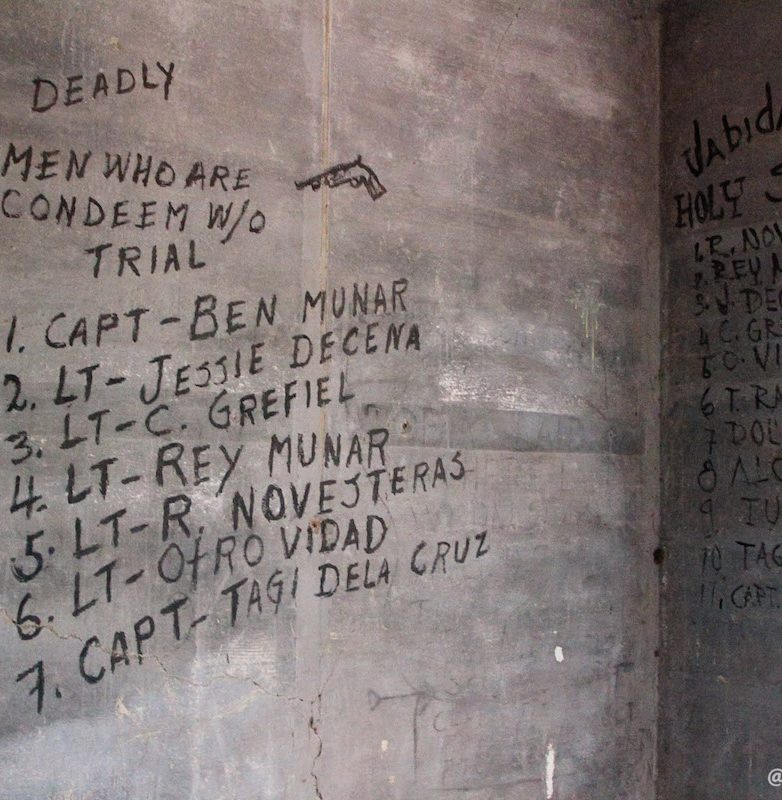 DEADLY
MEN WHO ARE
CONDEEM W/O
TRIAL
1. CAPT - BEN MUNAR
2. LT - JESSIE DECENA
3. LT - C. GREFIEL
4. LT - REY MUNAR
5. LT - R. NOVESTERAS
6. LT - OTRO VIDAD
7. CAPT - TAGI DELA CRUZ
HOLY
1. R.
2. REY
3. J.
4 C.
5 O.
6 T.
7
8
9
10
11. CAPT
@